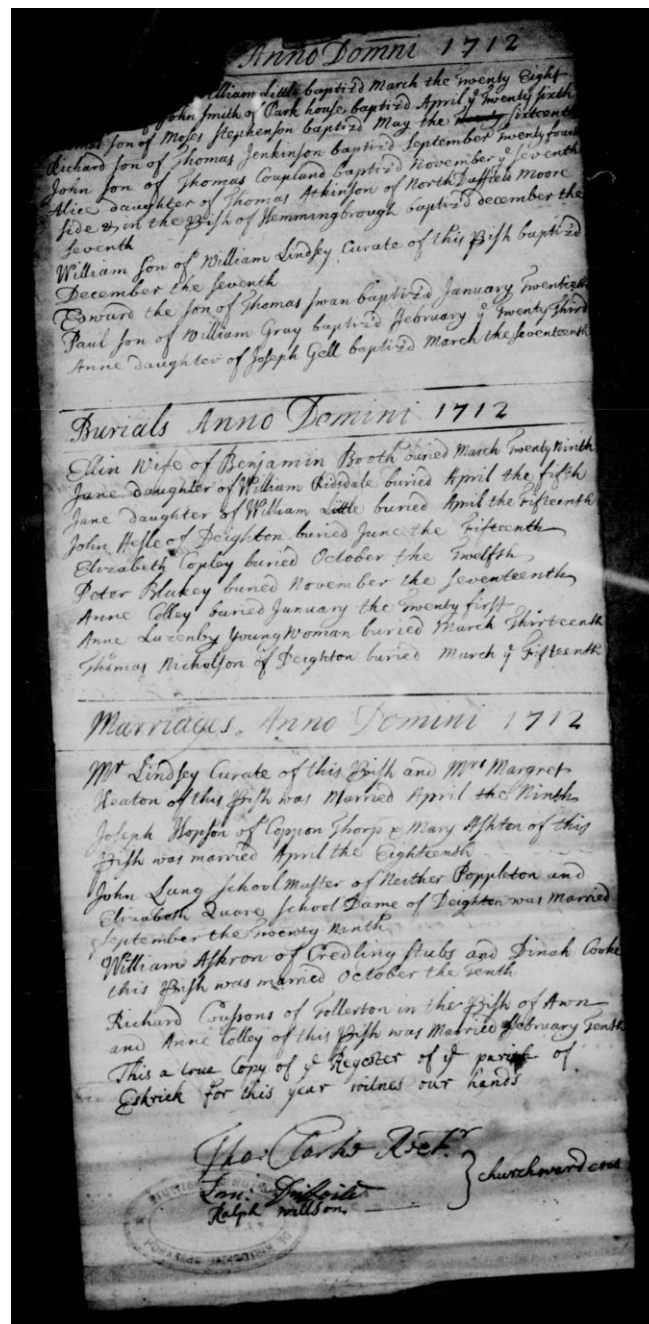 Anno Domni 1712
William Little baptiz'd March the Twenty Eight
John Smith of Park house baptiz'd April ye Twenty sixth
son of Moses Stephenson baptiz'd May the sixteenth
Richard son of Thomas Jenkinson baptiz'd September Twenty fourth
John son of Thomas Coupland baptiz'd November ye seventh
Alice daughter of Thomas Atkinson of North Duffield Moore
side & in the Prish of Hemmingbrough baptiz'd december the
seventh
William son of William Lindsey Curate of this Prish baptiz'd
December the seventh
Edward the son of Thomas Swan baptiz'd January Twentieth
Paul son of William Gray baptiz'd February ye Twenty Third
Anne daughter of Joseph Gell baptiz'd March the seventeenth
Burials Anno Domini 1712
Ellin Wife of Benjamin Booth buried March Twenty Ninth
Jane daughter of William Ridsdale buried April the fifth
Jane daughter of William Little buried April the Fifteenth
John Hesle of Deighton buried June the Fifteenth
Elizabeth Copley buried October the Twelfth
Peter Blakey buried November the seventeenth
Anne Colley buried January the Twenty first
Anne Lazenby Young Woman buried March Thirteenth
Thomas Nicholson of Deighton buried March ye Fifteenth
Marriages Anno Domini 1712
Mr Lindsey Curate of this Prish and Mrs Margret
Heaton of this Prish was Married April the Ninth
Joseph Hopson of Coppon Thorp & Mary Ashton of this
Prish was married April the Eighteenth
John Lang school Master of Neither Poppleton and
Elizabeth Quare school Dame of Deighton was Married
September the Twenty Ninth
William Askron of Credling stubs and Dinah Cooke
this Prish was married October the Tenth
Richard Coussons of Tollerton in the Prish of Awn
and Anne Colley of this Prish was Married February Tenth
This a true Copy of ye Regester of ye parish of
Eskrick for this year witnes our hands
Tho: Clarke Rectr
churchwardens
Ralph Willson